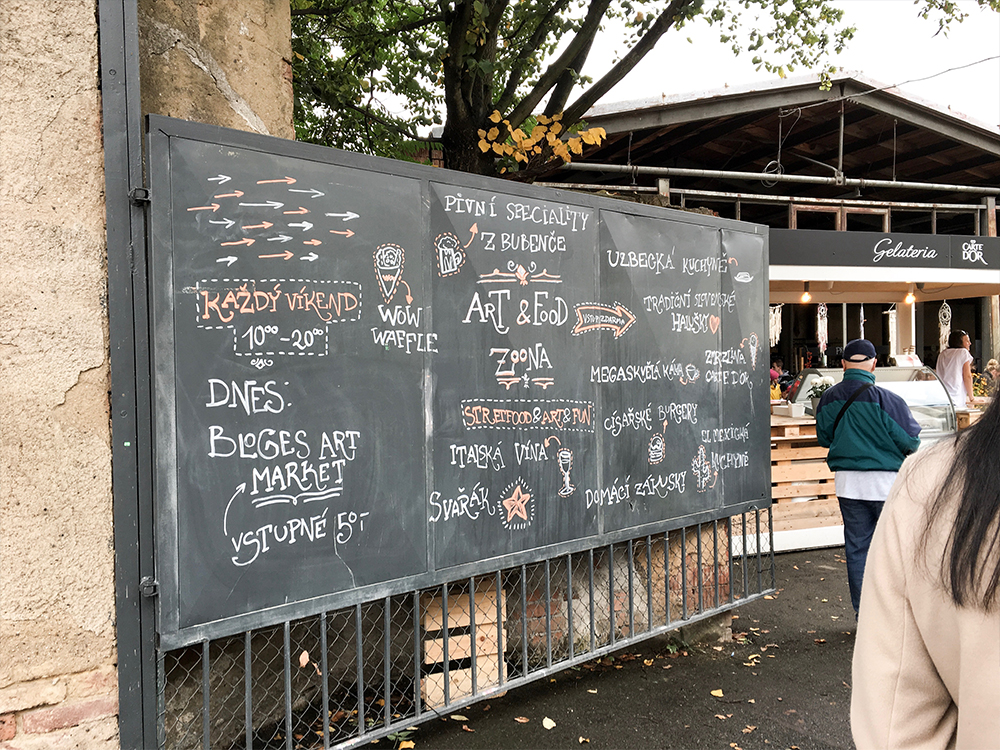 KAŽDÝ VÍKEND
10⁰⁰-20⁰⁰
WOW
WAFFLE
DNES:
BLOGES ART
MARKET
VSTUPNÉ 50,-
PIVNÍ SPECIALITY
Z BUBENČE
ART & FOOD
VSTUP ZDARMA
ZOONA
STREETFOOD & ART & FUN
ITALSKÁ VÍNA
SVAŘÁK
UZBECKÁ KUCHYNĚ
TRADIČNÍ SLOVENSKÉ
HALUŠKY
MEGASKVĚLÁ KÁVA
ZMRZLINA
CARTE D'OR
CÍSAŘSKÉ BURGERY
MEXICKÁ
KUCHYNĚ
DOMÁCÍ ZÁKUSKY
Gelateria
CARTE
D'OR